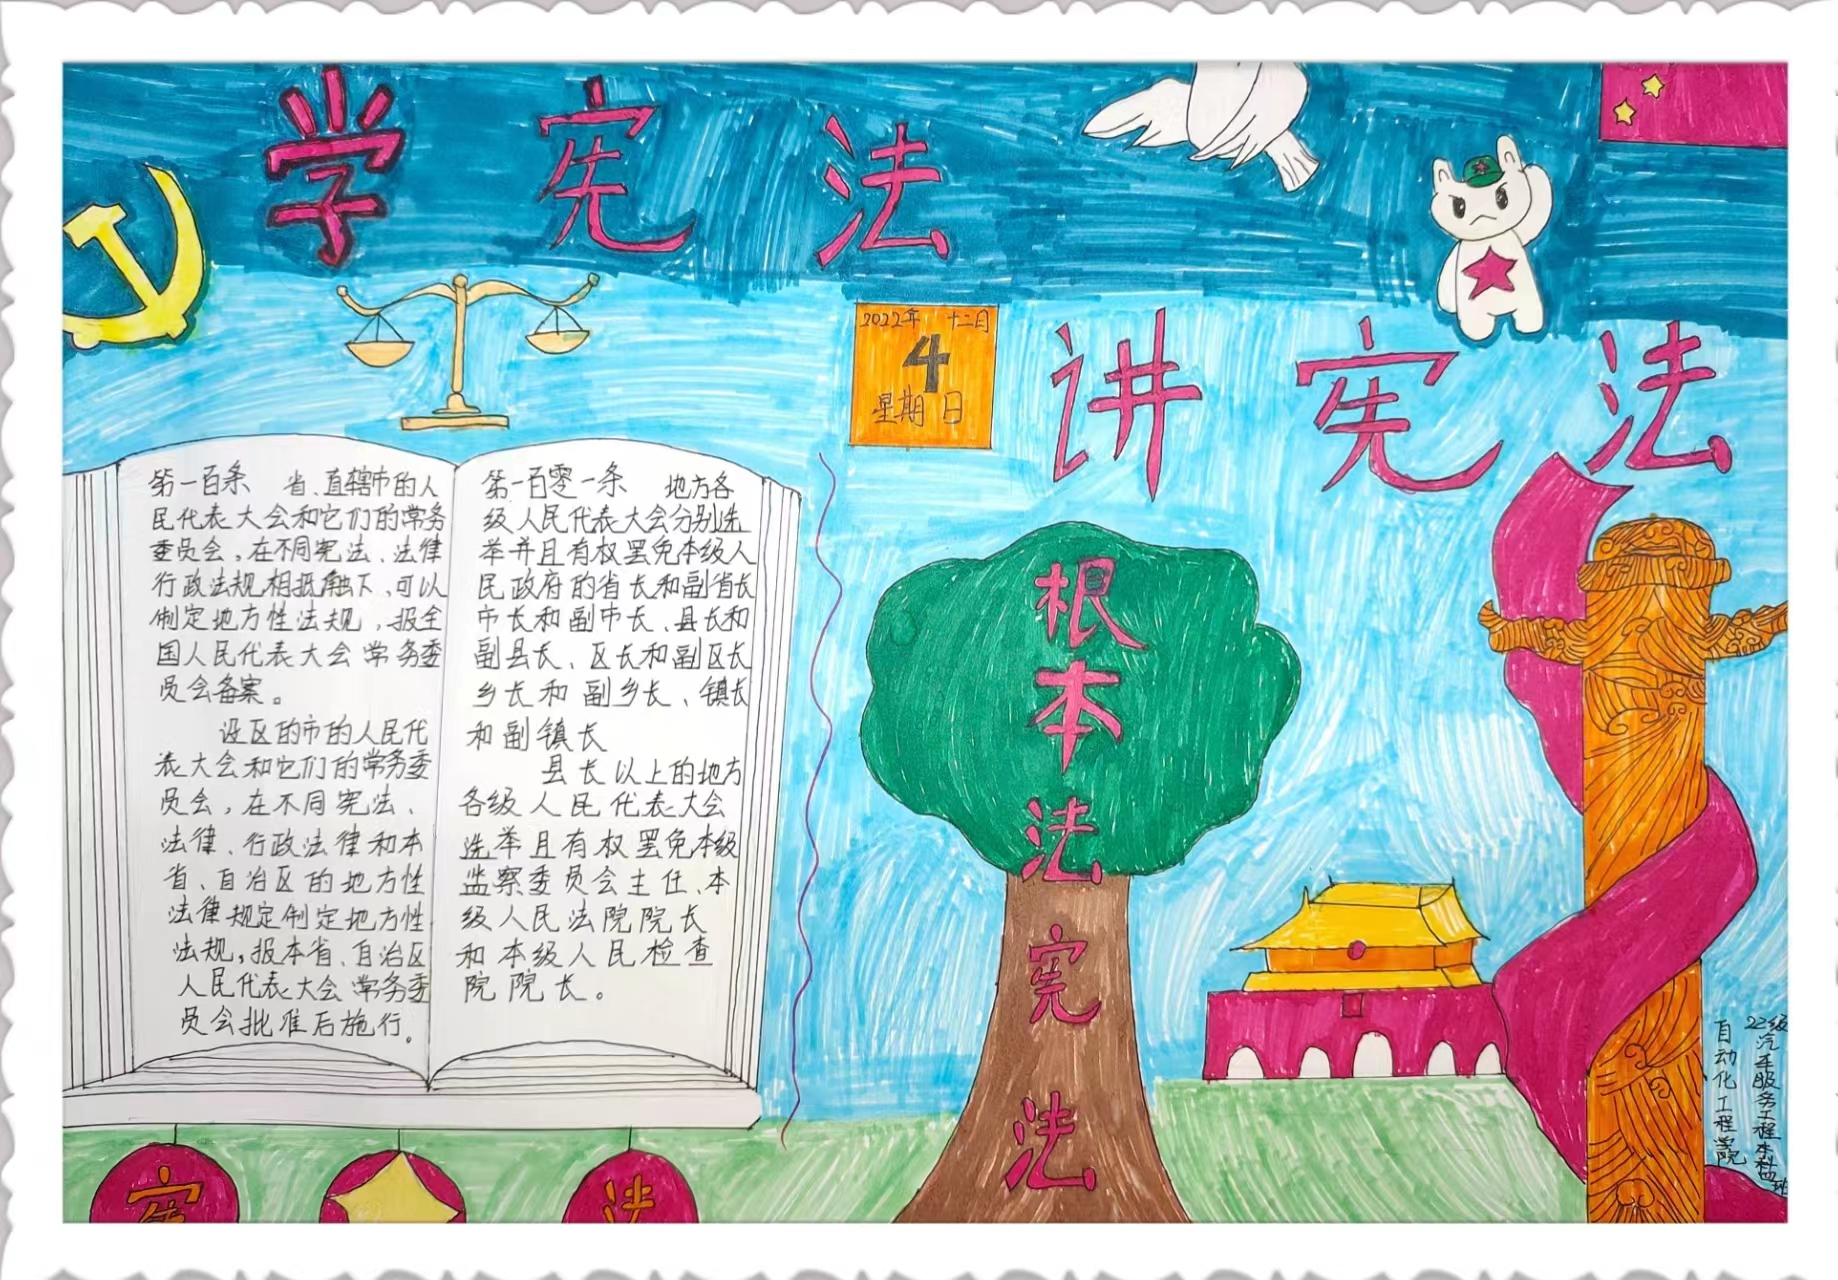 学宪法
2022年 十二月
4
星期日
讲宪法
第一百条 省、直辖市的人
民代表大会和它们的常务
委员会,在不同宪法、法律
行政法规相抵触下、可以
制定地方性法规,报全
国人民代表大会常务委
员会备案。
设区的市的人民代
表大会和它们的常务委
员会,在不同宪法、
法律、行政法律和本
省、自治区的地方性
法律规定制定地方性
法规,报本省、自治区
人民代表大会常务委
员会批准后施行。
第一百零一条 地方各
级人民代表大会分别选
举并且有权罢免本级人
民政府的省长和副省长
市长和副市长、县长和
副县长、区长和副区长
乡长和副乡长、镇长
和副镇长
县长以上的地方
各级人民代表大会
选举且有权罢免本级
监察委员会主任、本
级人民法院院长
和本级人民检查
院院长。
根本法宪法
22级汽车服务工程本科四班
自动化工程学院
宪
法